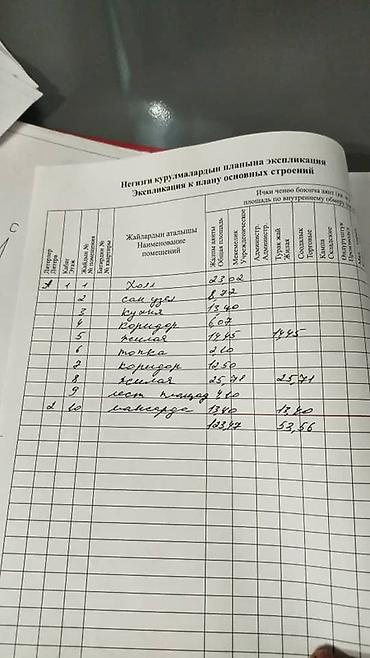 Негизги курулмалардын планына экспликация
Экспликация к плану основных строений
Ички ченөө боюнча аянт
площадь по внутреннему обмеру
Литерлер
Литера
Кабат
Этаж
Жайдын №
№ помещения
Батирдин №
№ квартиры
Жайлардын аталышы
Наименование
помещений
Жалпы аянты
Общая площадь
Мекемелик
Учрежденческое
Администр.
Администр.
Турак жай
Жилая
Соодалык
Торговые
Кампа
Складские
А 1 1 Холл 23.02
2 сан узел 8,72
3 кухня 13,40
4 коридор 6,07
5 жилая 14,45 14,45
6 топка
7 коридор 12,50
8 жилая 25,71 25,71
9 лест площад 4,10
2 10 мансарда 13,40 13,40
123,47 53,56